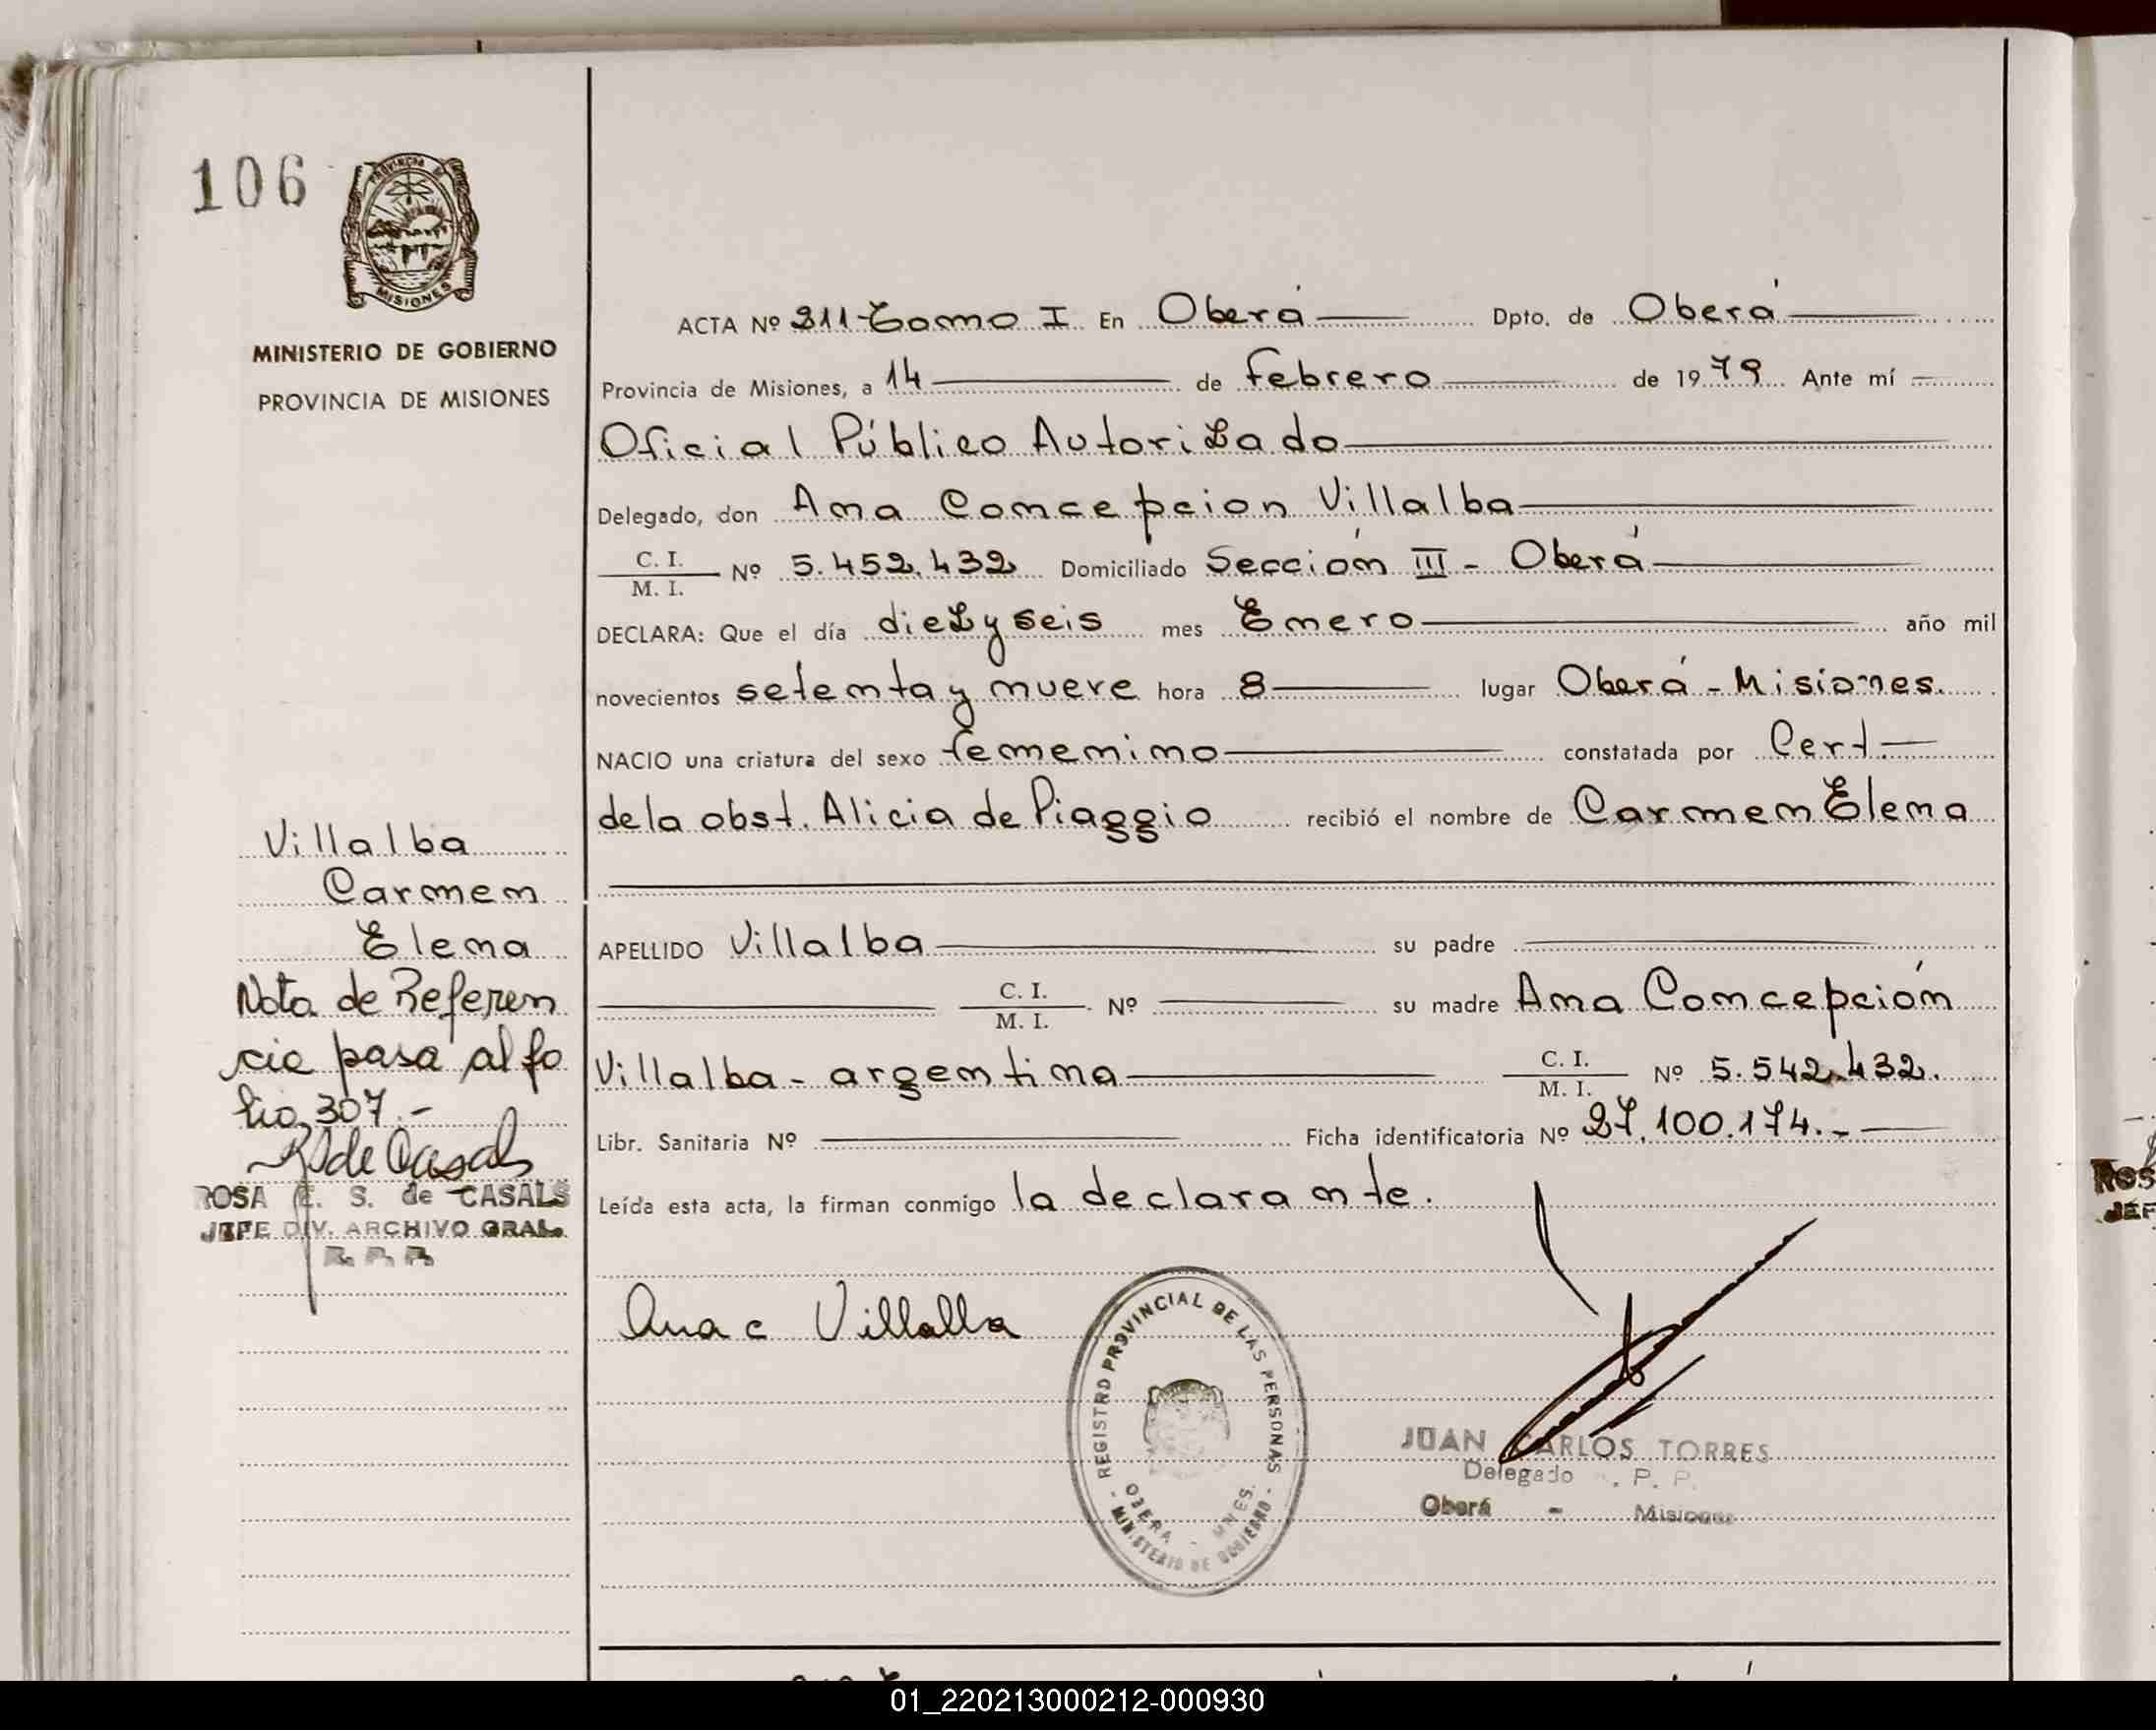 106
PROVINCIA DE
MISIONES
MINISTERIO DE GOBIERNO
PROVINCIA DE MISIONES
ACTA Nº 211-Tomo I En Oberá Dpto. de Oberá
Provincia de Misiones, a 14 de Febrero de 1979 Ante mí
Oficial Público Autorizado
Delegado, don Ana Concepcion Villalba
C. I.
M. I.
Nº 5.452.432 Domiciliado Sección III - Oberá
DECLARA: Que el día diezyseis mes Enero año mil
novecientos setenta y nueve hora 8 lugar Oberá - Misiones.
NACIO una criatura del sexo femenino constatada por Cert.
de la obst. Alicia de Piaggio recibió el nombre de Carmen Elena
APELLIDO Villalba su padre
C. I.
M. I.
Nº su madre Ana Concepción
Villalba - argentina C. I.
M. I.
Nº 5.542.432.
Libr. Sanitaria Nº Ficha identificatoria Nº 27.100.174.-
Leída esta acta, la firman conmigo la declarante.
Villalba
Carmen
Elena
Nota de Referen
cia pasa al fo
lio 307.-
R S de Casals
ROSA E. S. de CASALS
JEFE DIV. ARCHIVO GRAL.
R. P. P.
Ana C Villalba
REGISTRO PROVINCIAL DE LAS PERSONAS
OBERA - MNES.
- MINISTERIO DE GOBIERNO -
JUAN CARLOS TORRES
Delegado R. P. P.
Oberá - Misiones
ROS
JEF
01_220213000212-000930